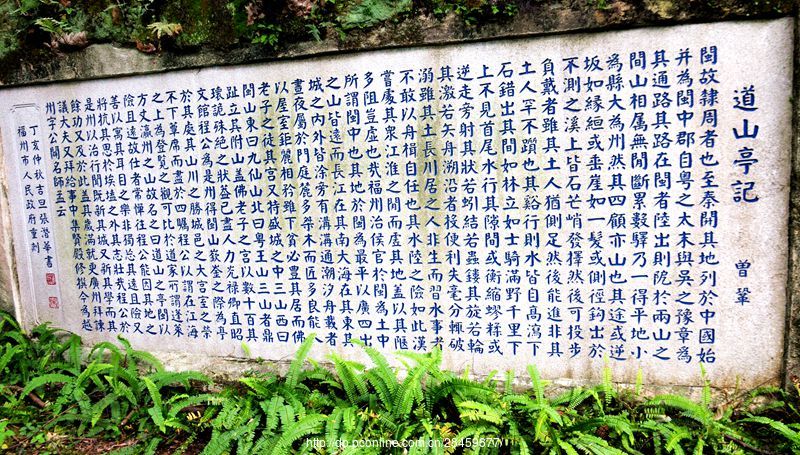 道山亭記 曾鞏
閩故隸周者也至秦開其地列於中國始
并為閩中郡自粵之太末與吳之豫章為
其通路其路在閩者陸出則阸於兩山之
間山相屬無間斷累數驛乃一得平地小
為縣大為州然其四顧亦山也其途或逆
坂如緣絙或垂崖如一髮或側徑鉤出於
不測之溪上皆石芒峭發擇然後可投步
負戴者雖其土人猶側足然後能進非其
土人罕不躓也其谿行則水皆自高瀉下
石錯出其間如林立如士騎滿野千里下
上不見首尾水行其隙間或衡縮蟉糅或
逆走旁射其狀若蚓結若蟲鏤其旋若輪
其激若矢舟溯沿者投便利失毫分輒破
溺雖其土長川居之人非生而習水事者
不敢以舟楫自任也其水陸之險如此漢
嘗處其眾江淮之間而虛其地蓋以其陿
多阻豈虛也哉福州治侯官於閩為土中
所謂閩中也其地於閩為最平以廣四出
之山皆遠而長江在其南大海在其東其
城之內外皆涂旁有溝溝通潮汐舟載者
晝夜屬於門庭麓多桀木而匠多良能人
以屋室鉅麗相矜雖下貧必豐其居而佛
老子之徒其宮又特盛城之中三山西曰
閩山東曰九仙山北曰粵王山三山者鼎
趾立其附山蓋佛老子之宮以數十百其
瓌詭殊絕之狀蓋已盡人力光祿卿直昭
文館程公為是州得閩山嶔崟之際為亭
於其處其山川之勝城邑之大宮室之榮
不下簟席而盡於四矚程公以謂在江海
之上為登覽之觀可比於道家所謂蓬萊
方丈瀛州之山故名之曰道山之亭閩以
險且遠故仕者常憚往程公能因其地之
善以寓其耳目之樂非獨忘其遠且險又
將抗其思於埃壒之外其志壯哉程公於
是州以治行聞既新其城又新其學而其
餘功又及於此蓋其歲滿就更廣州拜諫
議大夫又拜給事中集賢殿修撰今為越
州字公闢名師孟云
丁亥仲秋吉旦張潛華書
福州市人民政府重刻
http://dp.pconline.com.cn/28459677/